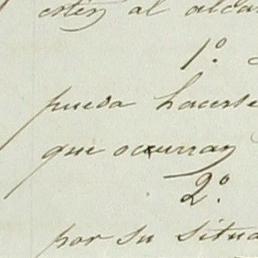 estén al alca
1.º
pueda hacerse
que ocurran
2.º
por su situa